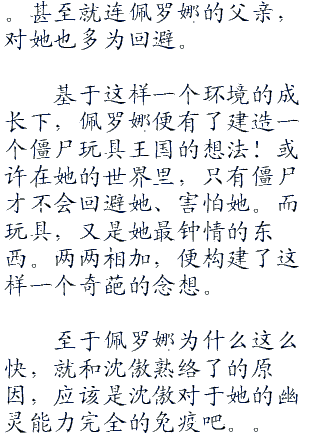 。甚至就连佩罗娜的父亲，
对她也多为回避。
基于这样一个环境的成
长下，佩罗娜便有了建造一
个僵尸玩具王国的想法！或
许在她的世界里，只有僵尸
才不会回避她、害怕她。而
玩具，又是她最钟情的东
西。两两相加，便构建了这
样一个奇葩的念想。
至于佩罗娜为什么这么
快，就和沈傲熟络了的原
因，应该是沈傲对于她的幽
灵能力完全的免疫吧。。